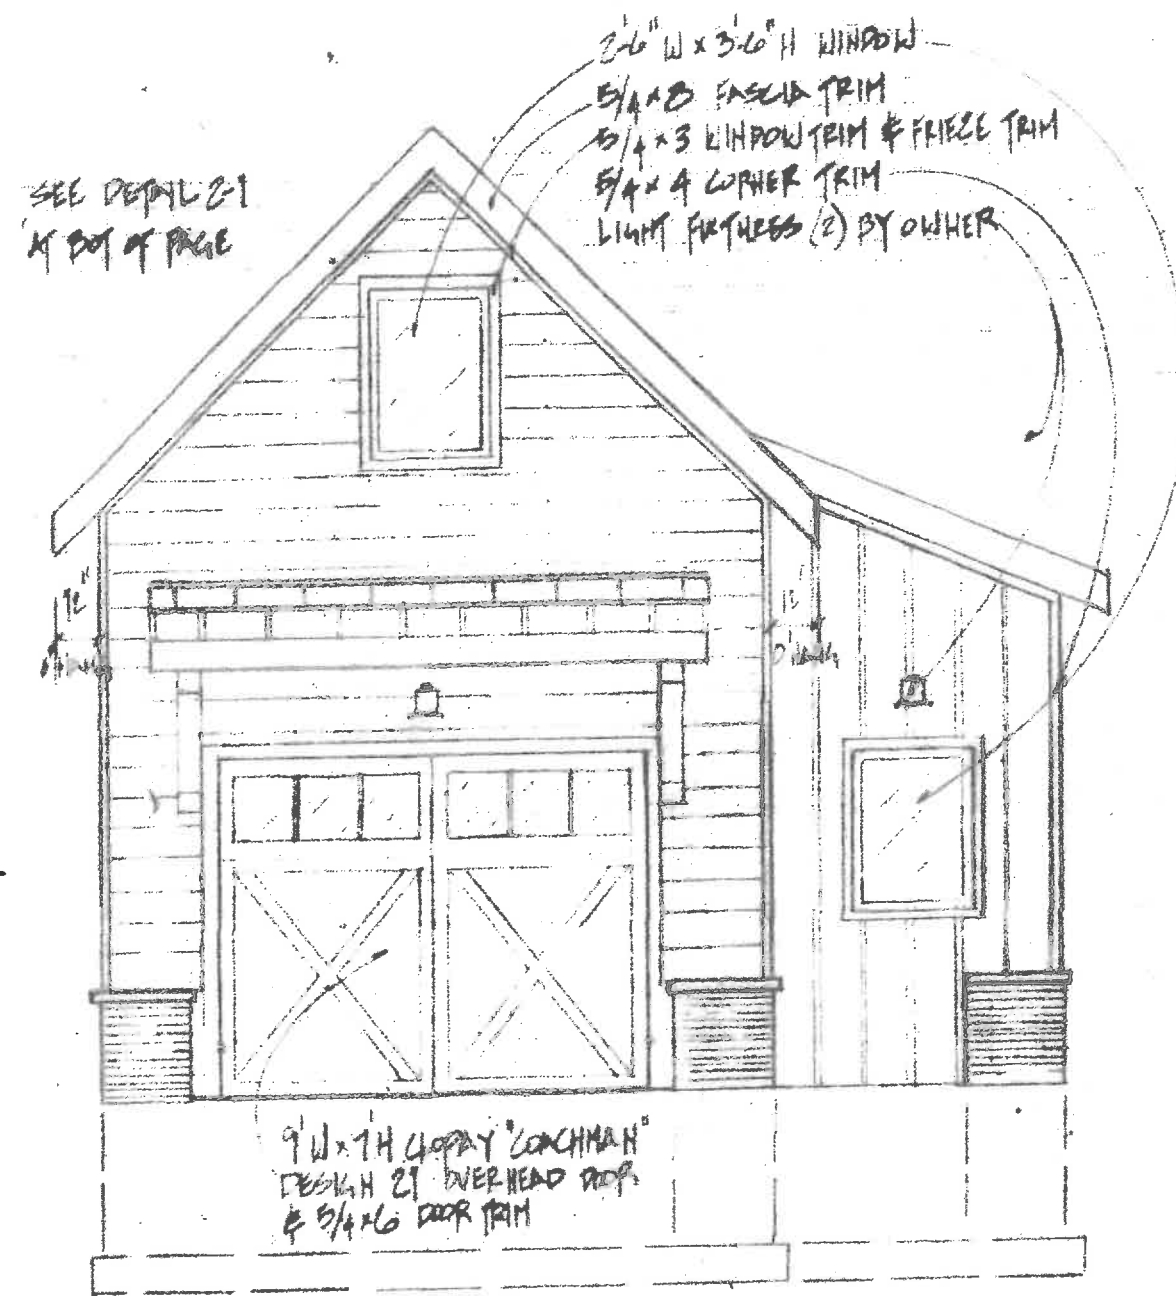 2'-6" W x 3'-6" H WINDOW
5/4 x 8 FASCIA TRIM
5/4 x 3 WINDOW TRIM & FRIEZE TRIM
5/4 x 4 CORNER TRIM
LIGHT FIXTURES (2) BY OWNER
SEE DETAIL 2-1
AT BOT OF PAGE
12"
12
9'W x 7'H CLOPAY "COACHMAN"
DESIGN 21 OVERHEAD DOOR
& 5/4 x 6 DOOR TRIM